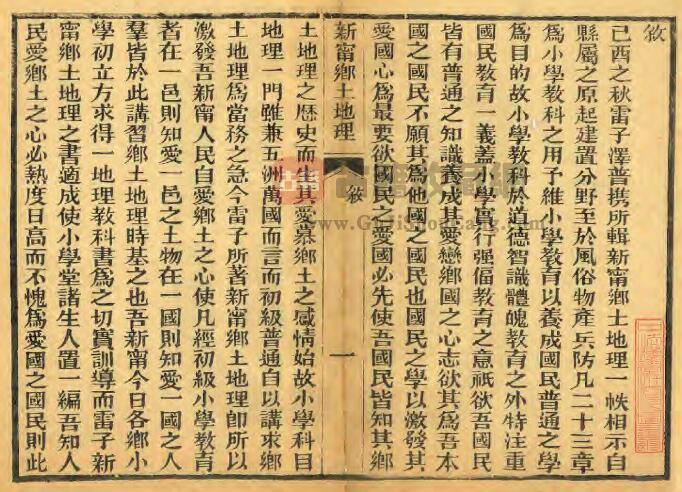 敘
己酉之秋雷子澤普携所輯新甯鄉土地理一帙相示自
縣屬之原起建置分野至於風俗物產兵防凡二十三章
爲小學教科之用予維小學教育以養成國民普通之學
爲目的故小學教科於道德智識體魄教育之外特注重
國民教育一義蓋小學實行强偪教育之意祇欲吾國民
皆有普通之知識養成其愛戀鄉國之心志欲其爲吾本
國之國民不願其爲他國之國民也國民之學以激發其
愛國心爲最要欲國民之愛國必先使吾國民皆知其鄉
新甯鄉土地理
敘
一
土地理之歷史而生其愛慕鄉土之感情始故小學科目
地理一門雖兼五洲萬國而言而初級普通自以講求鄉
土地理爲當務之急今雷子所著新甯鄉土地理卽所以
激發吾新甯人民自愛鄉土之心使凡經初級小學教育
者在一邑則知愛一邑之土物在一國則知愛一國之人
羣皆於此講習鄉土地理時基之也吾新甯今日各鄉小
學初立方求得一地理教科書爲之切實訓導而雷子新
甯鄉土地理之書適成使小學堂諸生人置一編吾知人
民愛鄉土之心必熱度日高而不愧爲愛國之國民則此
www.GujiShuCang.com